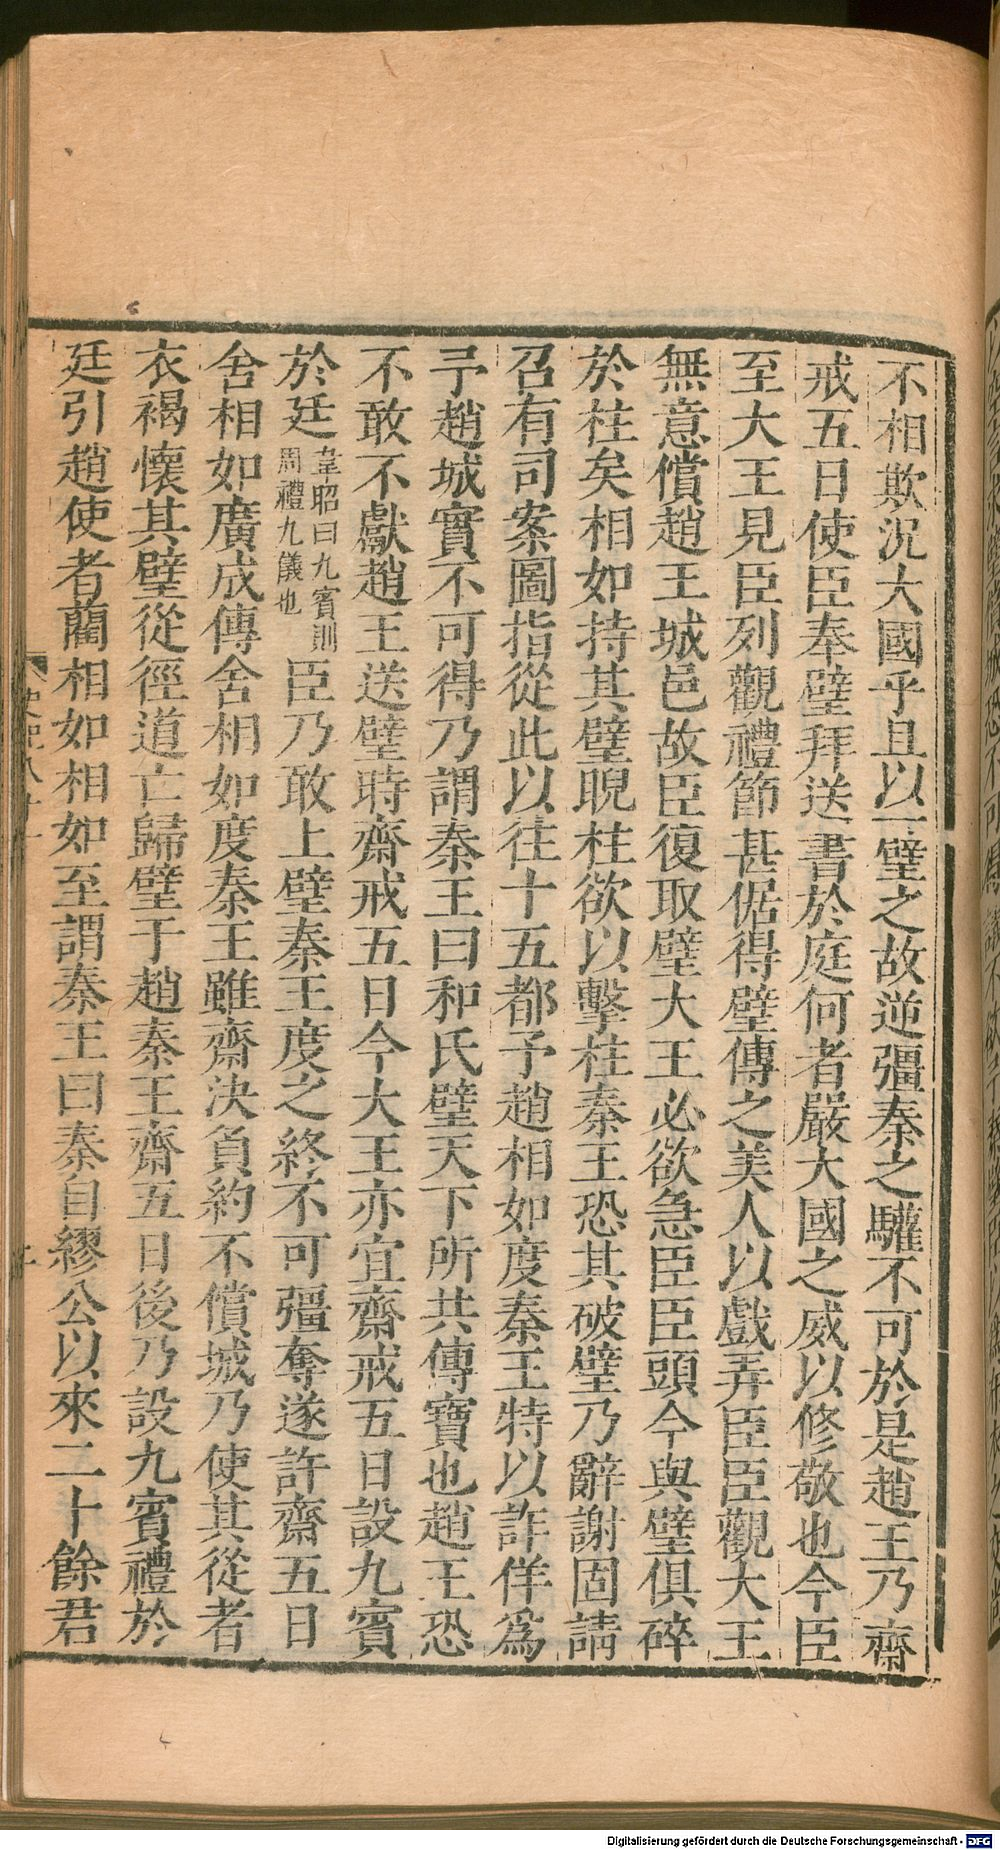 不相欺況大國乎且以一璧之故逆彊秦之驩不可於是趙王乃齋
戒五日使臣奉璧拜送書於庭何者嚴大國之威以修敬也今臣
至大王見臣列觀禮節甚倨得璧傳之美人以戲弄臣臣觀大王
無意償趙王城邑故臣復取璧大王必欲急臣臣頭今與璧俱碎
於柱矣相如持其璧睨柱欲以擊柱秦王恐其破璧乃辭謝固請
召有司案圖指從此以往十五都予趙相如度秦王特以詐佯爲
予趙城實不可得乃謂秦王曰和氏璧天下所共傳寶也趙王恐
不敢不獻趙王送璧時齋戒五日今大王亦宜齋戒五日設九賓
於廷韋昭曰九賓則周禮九儀也臣乃敢上璧秦王度之終不可彊奪遂許齋五日
舍相如廣成傳舍相如度秦王雖齋決負約不償城乃使其從者
衣褐懷其璧從徑道亡歸璧于趙秦王齋五日後乃設九賓禮於
廷引趙使者藺相如相如至謂秦王曰秦自繆公以來二十餘君
Digitalisierung gefördert durch die Deutsche Forschungsgemeinschaft - DFG